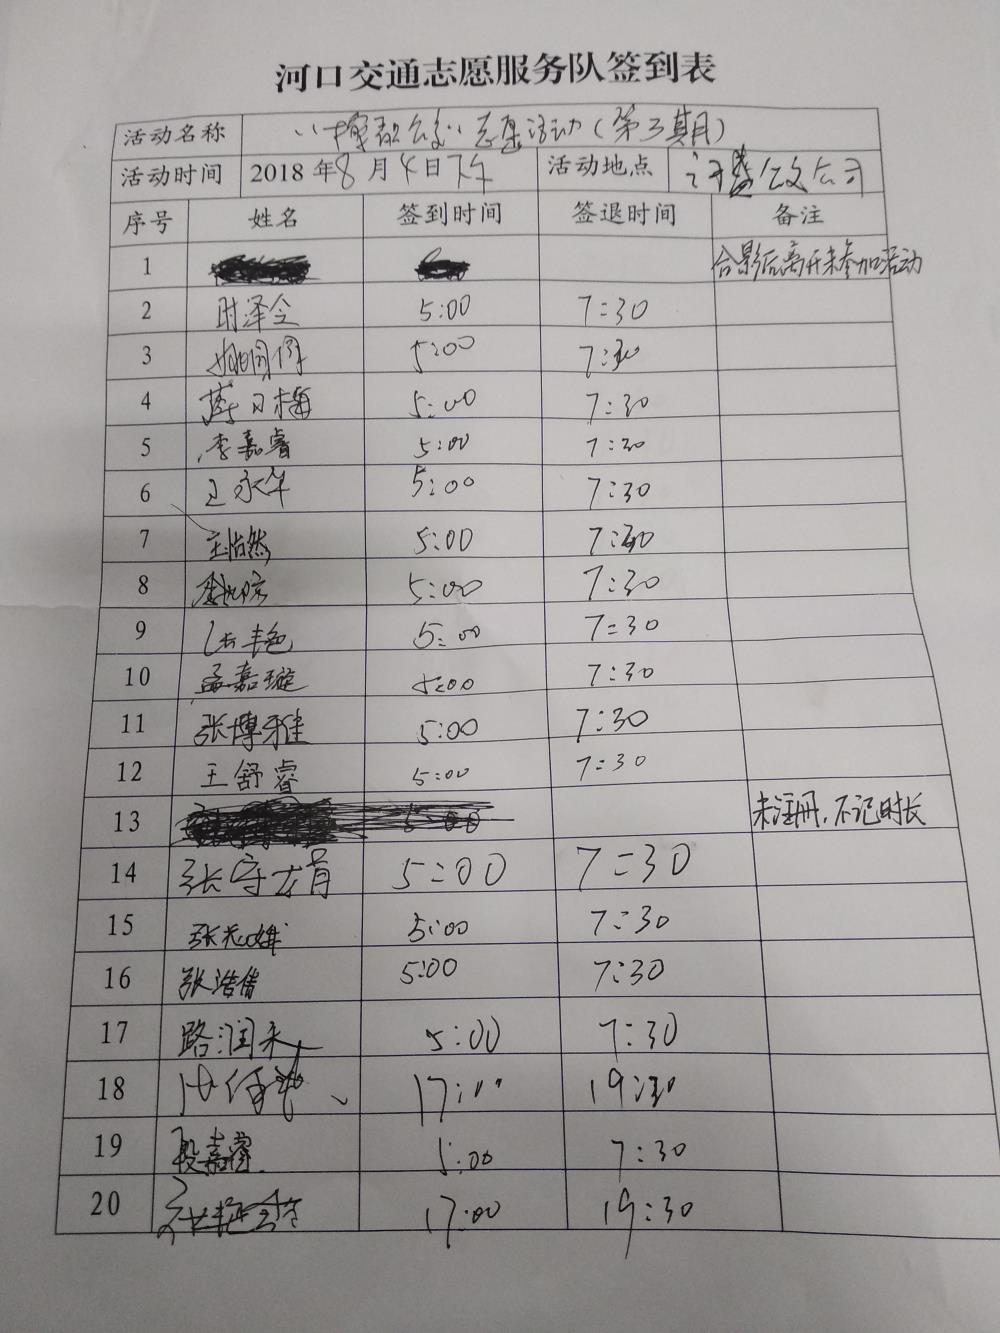 河口交通志愿服务队签到表
活动名称 志愿活动(第3期)
活动时间 2018年8月4日下午 活动地点 公交公司
序号 姓名 签到时间 签退时间 备注
1 合影后离开未参加活动
2 时泽令 5:00 7:30
3 5:00 7:30
4 5:00 7:30
5 李嘉睿 5:00 7:30
6 王永军 5:00 7:30
7 王怡然 5:00 7:30
8 5:00 7:30
9 5:00 7:30
10 孟嘉璇 5:00 7:30
11 张博雅 5:00 7:30
12 王舒睿 5:00 7:30
13 5:00 未注册,不记时长
14 张守 5:00 7:30
15 张 5:00 7:30
16 张浩倩 5:00 7:30
17 路润禾 5:00 7:30
18 17:00 19:30
19 段嘉睿 5:00 7:30
20 17:00 19:30